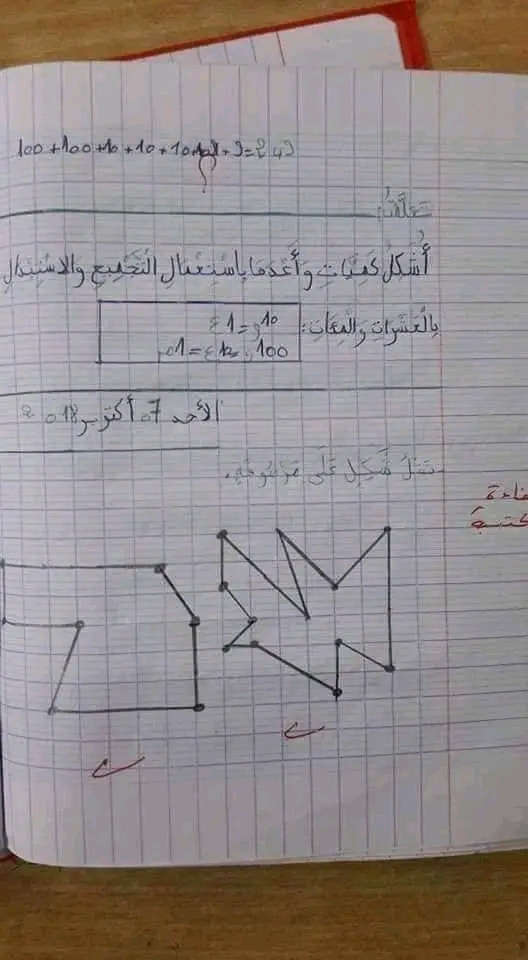 100+100+10+10+10+10+9=249
تعلمت
أُشكِلُ كَمِيَّاتِ وَأَعُدَّهَا بِاسْتِعْمَالِ التَّجْمِيعِ وَالاسْتِبْدَالِ
بِالْعَشَرَاتِ وَالْمِئَاتِ:
10و=1ع
100و=10ع=1م
الأحد 07 أكتوبر 2018
نَقْلُ شَكْلٍ عَلَى مَرْصُوفَةٍ.